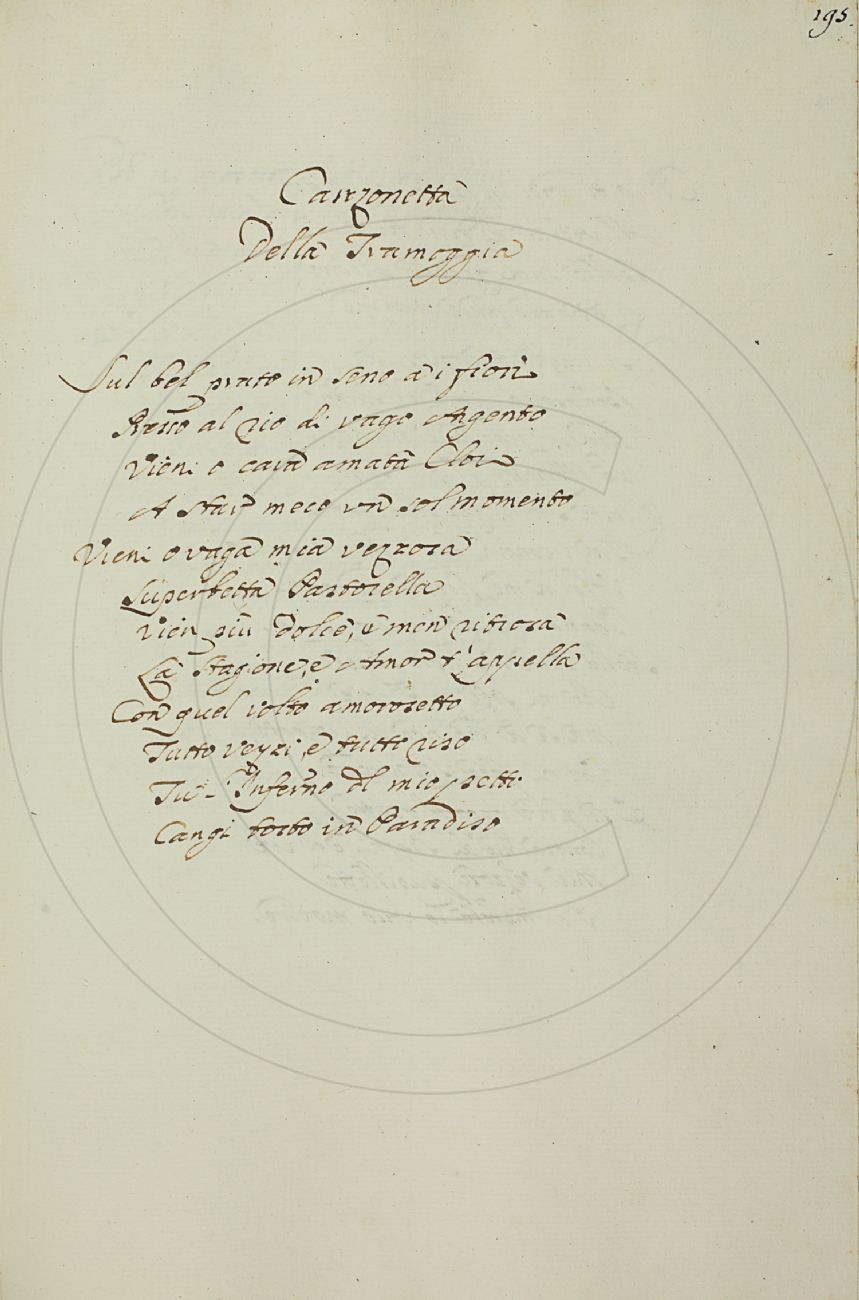 195.
Canzonetta
Della Tramoggia
Sul bel prato in seno a i fiori
Presso al rio di vago Argento
Vieni o cara amata Clori
A star meco un sol momento
Vieni o vaga mia vezzosa
Superbetta Pastorella
Vien più dolce, e men ritrosa
La Stagione, e Amor t'appella
Con quel volto amorosetto
Tutto vezzi, e tutto riso
Tu l'Inferno del mio petto
Cangi tosto in Paradiso